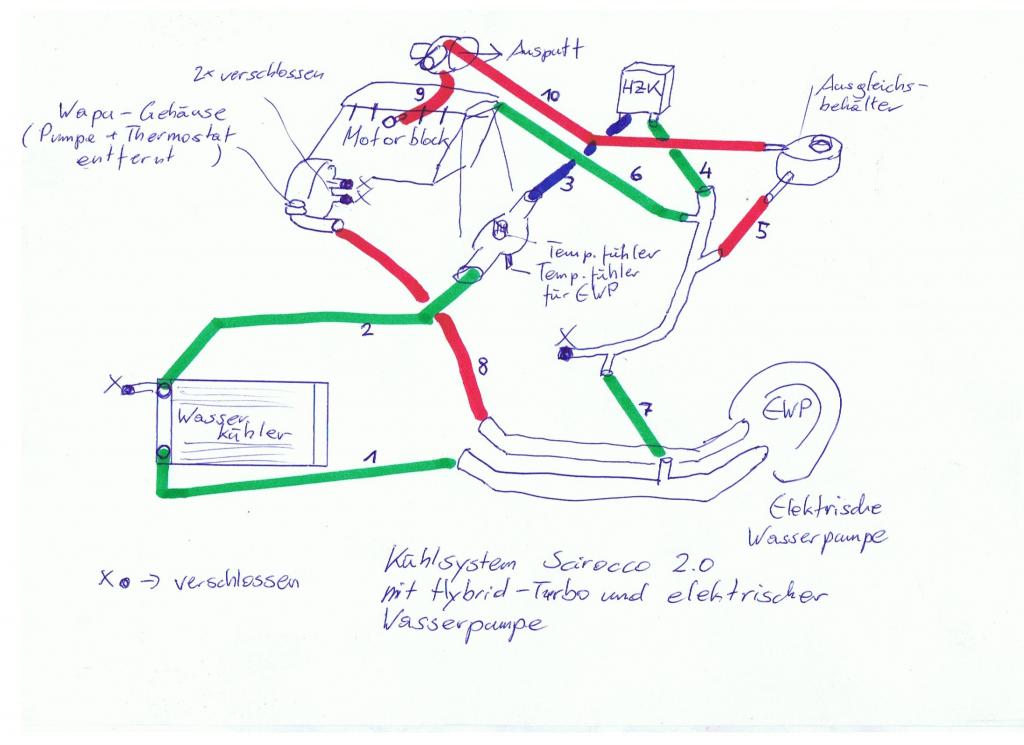 Auspuff
2x verschlossen
Wapu-Gehäuse
(Pumpe + Thermostat
entfernt )
HZK
Ausgleichs-
behälter
9
10
Motorblock
X
X
3
6
4
5
Temp.fühler
Temp.fühler
für EWP
2
X
8
X
7
Wasser
kühler
EWP
1
Elektrische
Wasserpumpe
X → verschlossen
Kühlsystem Scirocco 2.0
mit Hybrid-Turbo und elektrischer
Wasserpumpe